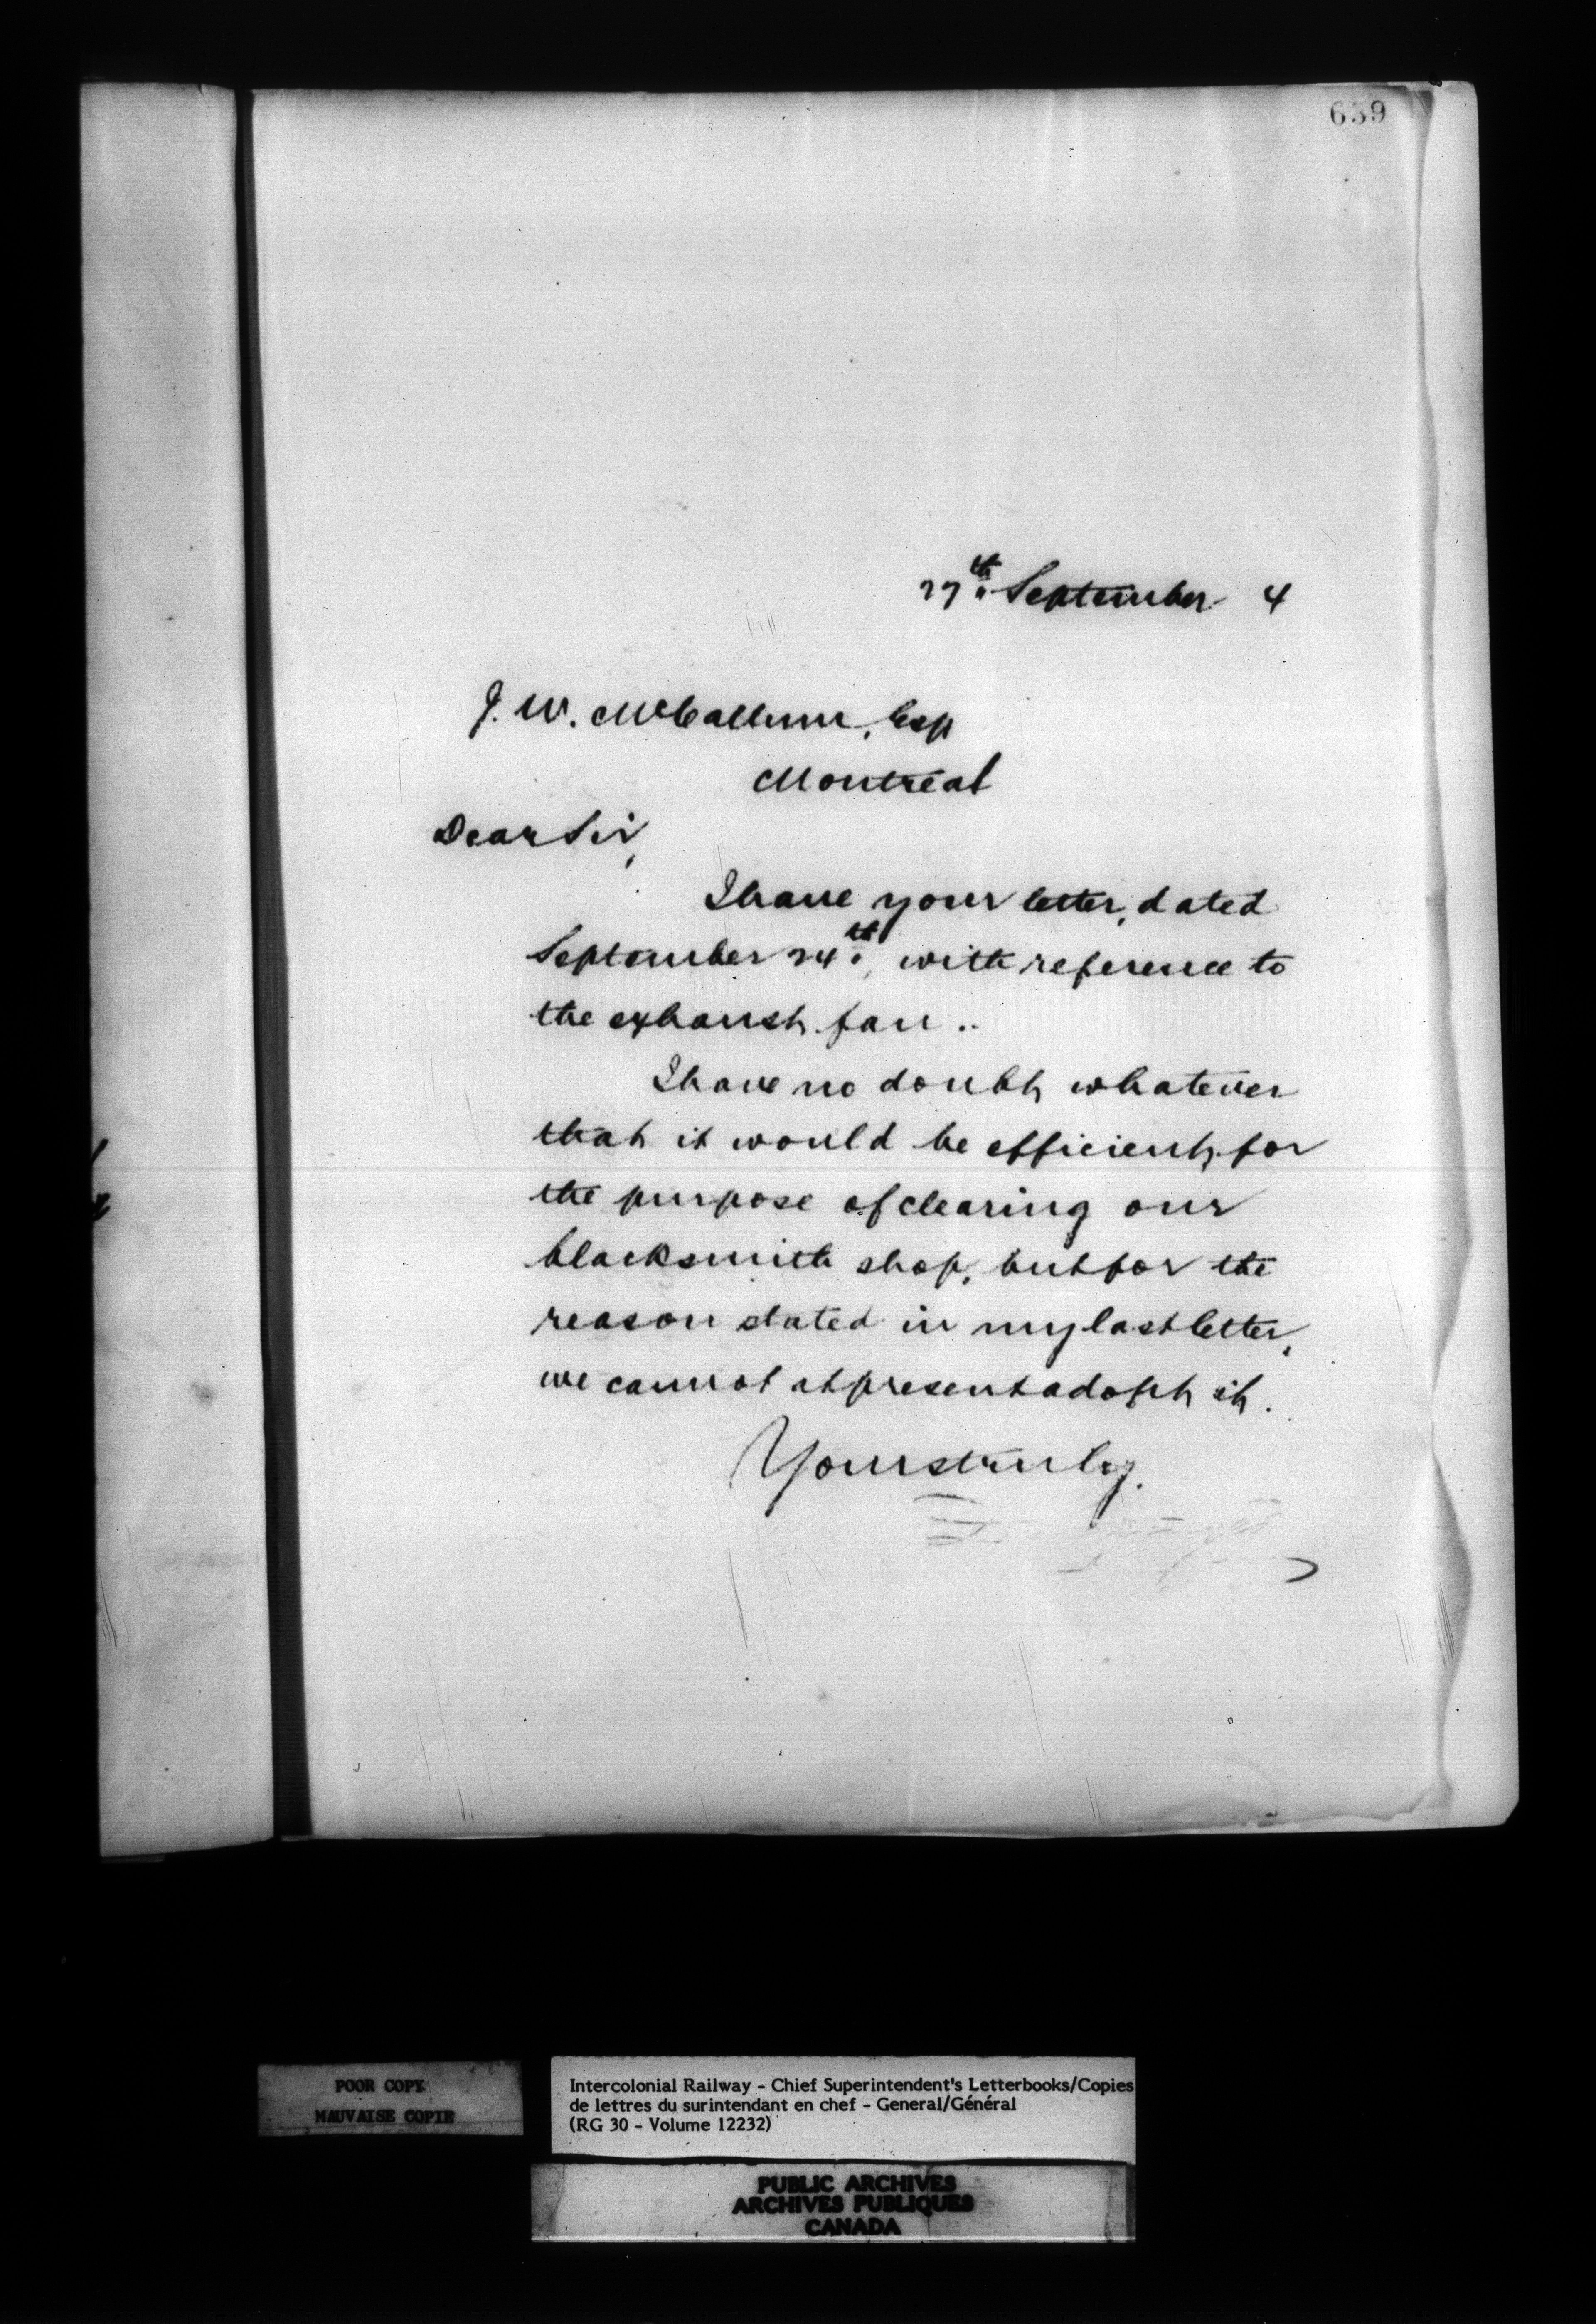 639
27th. September 4
J. W. McCallum, Esq
Montreal
Dear Sir,
I have your letter, dated
September 24th., with reference to
the exhaust fan..
I have no doubt whatever
that it would be efficient for
the purpose of clearing our
blacksmith shop, but for the
reason stated in my last letter,
we cannot at present adopt it.
Yours truly.
POOR COPY
MAUVAISE COPIE
Intercolonial Railway - Chief Superintendent's Letterbooks/Copies
de lettres du surintendant en chef - General/Général
(RG 30 - Volume 12232)
PUBLIC ARCHIVES
ARCHIVES PUBLIQUES
CANADA